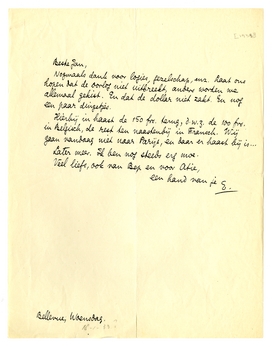 Beste Jan,
Nogmaals dank voor logies, gezelschap, enz. Laat ons
hopen dat de oorlog niet intreedt, anders worden we
allemaal gekist. En dat de dollar niet zakt. En nog
een paar dingetjes.
Hierbij in haast de 150 fr. terug, d.w.z. de 100 frc.
in Belgisch, de rest ten naastenbij in Fransch. Wij
gaan vandaag niet naar Parijs, en daar er haast bij is...
Later meer. Ik ben nog steeds erg moe.
Veel liefs, ook van Bep en voor Atie,
een hand van je
E.
Bellevue, Woensdag.